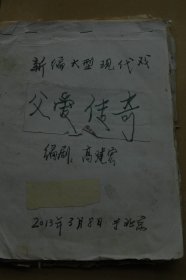 新编大型现代戏
父爱传奇
编剧：高建宏
2013年3月8日于北京